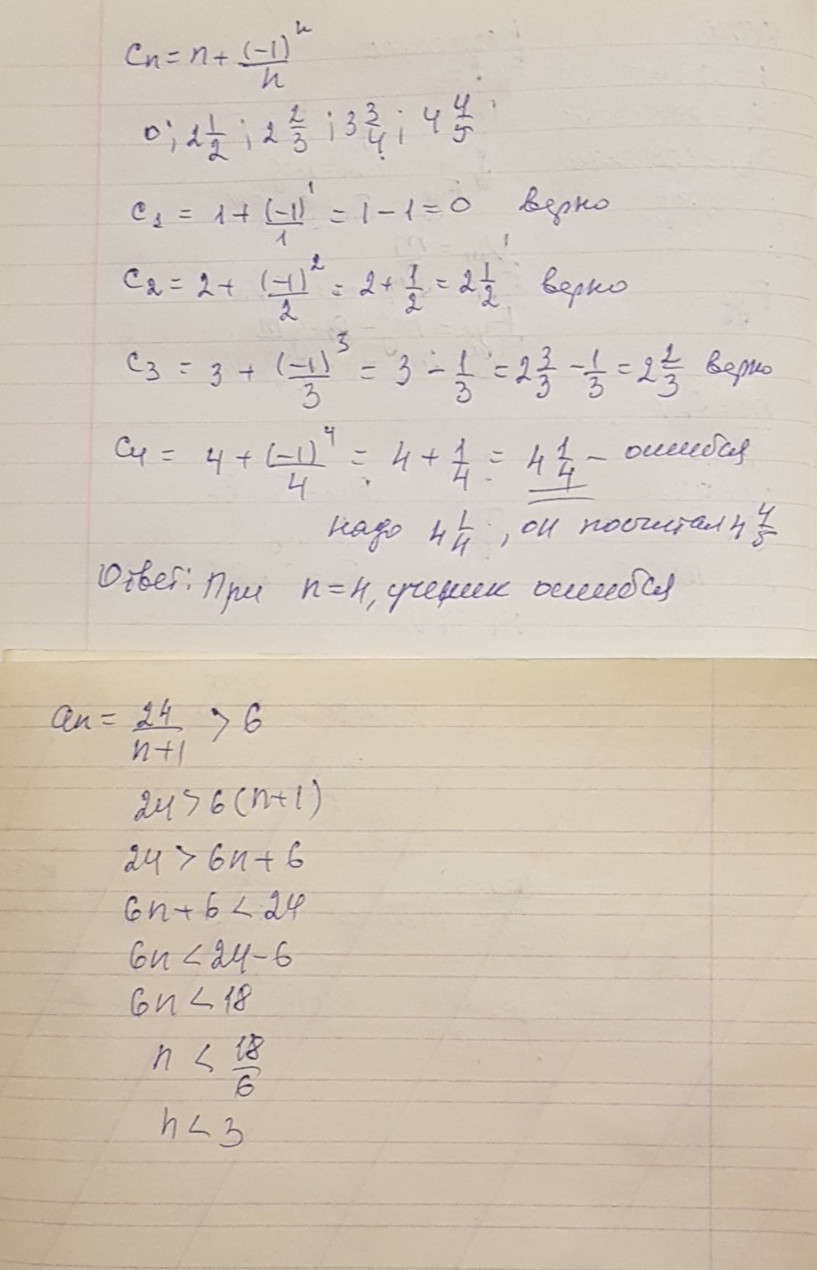 Cn = n + (-1)^n/n
0; 2 1/2; 2 2/3; 3 3/4; 4 4/5
C1 = 1 + (-1)^1/1 = 1 - 1 = 0 верно
C2 = 2 + (-1)^2/2 = 2 + 1/2 = 2 1/2 верно
C3 = 3 + (-1)^3/3 = 3 - 1/3 = 2 3/3 - 1/3 = 2 2/3 верно
C4 = 4 + (-1)^4/4 = 4 + 1/4 = 4 1/4 - ошибся
надо 4 1/4, он посчитал 4 4/5
Ответ: При n=4, ученик ошибся
an = 24/(n+1) > 6
24 > 6(n+1)
24 > 6n + 6
6n + 6 < 24
6n < 24 - 6
6n < 18
n < 18/6
n < 3